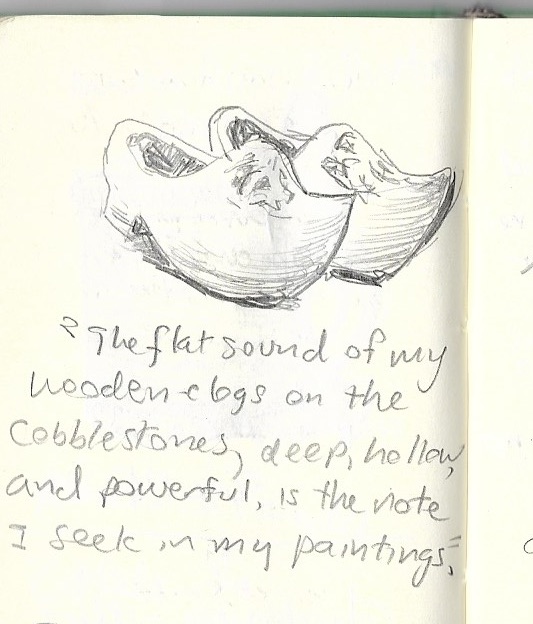 "The flat sound of my
wooden clogs on the
cobblestones, deep, hollow,
and powerful, is the note
I seek in my paintings."